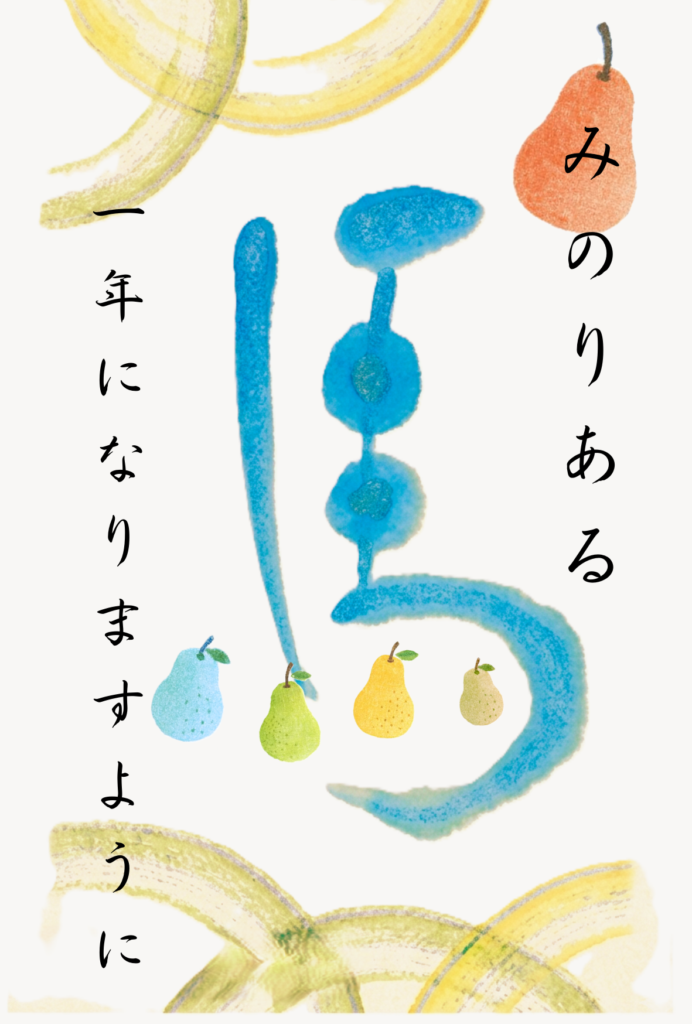 みのりある
一年になりますように